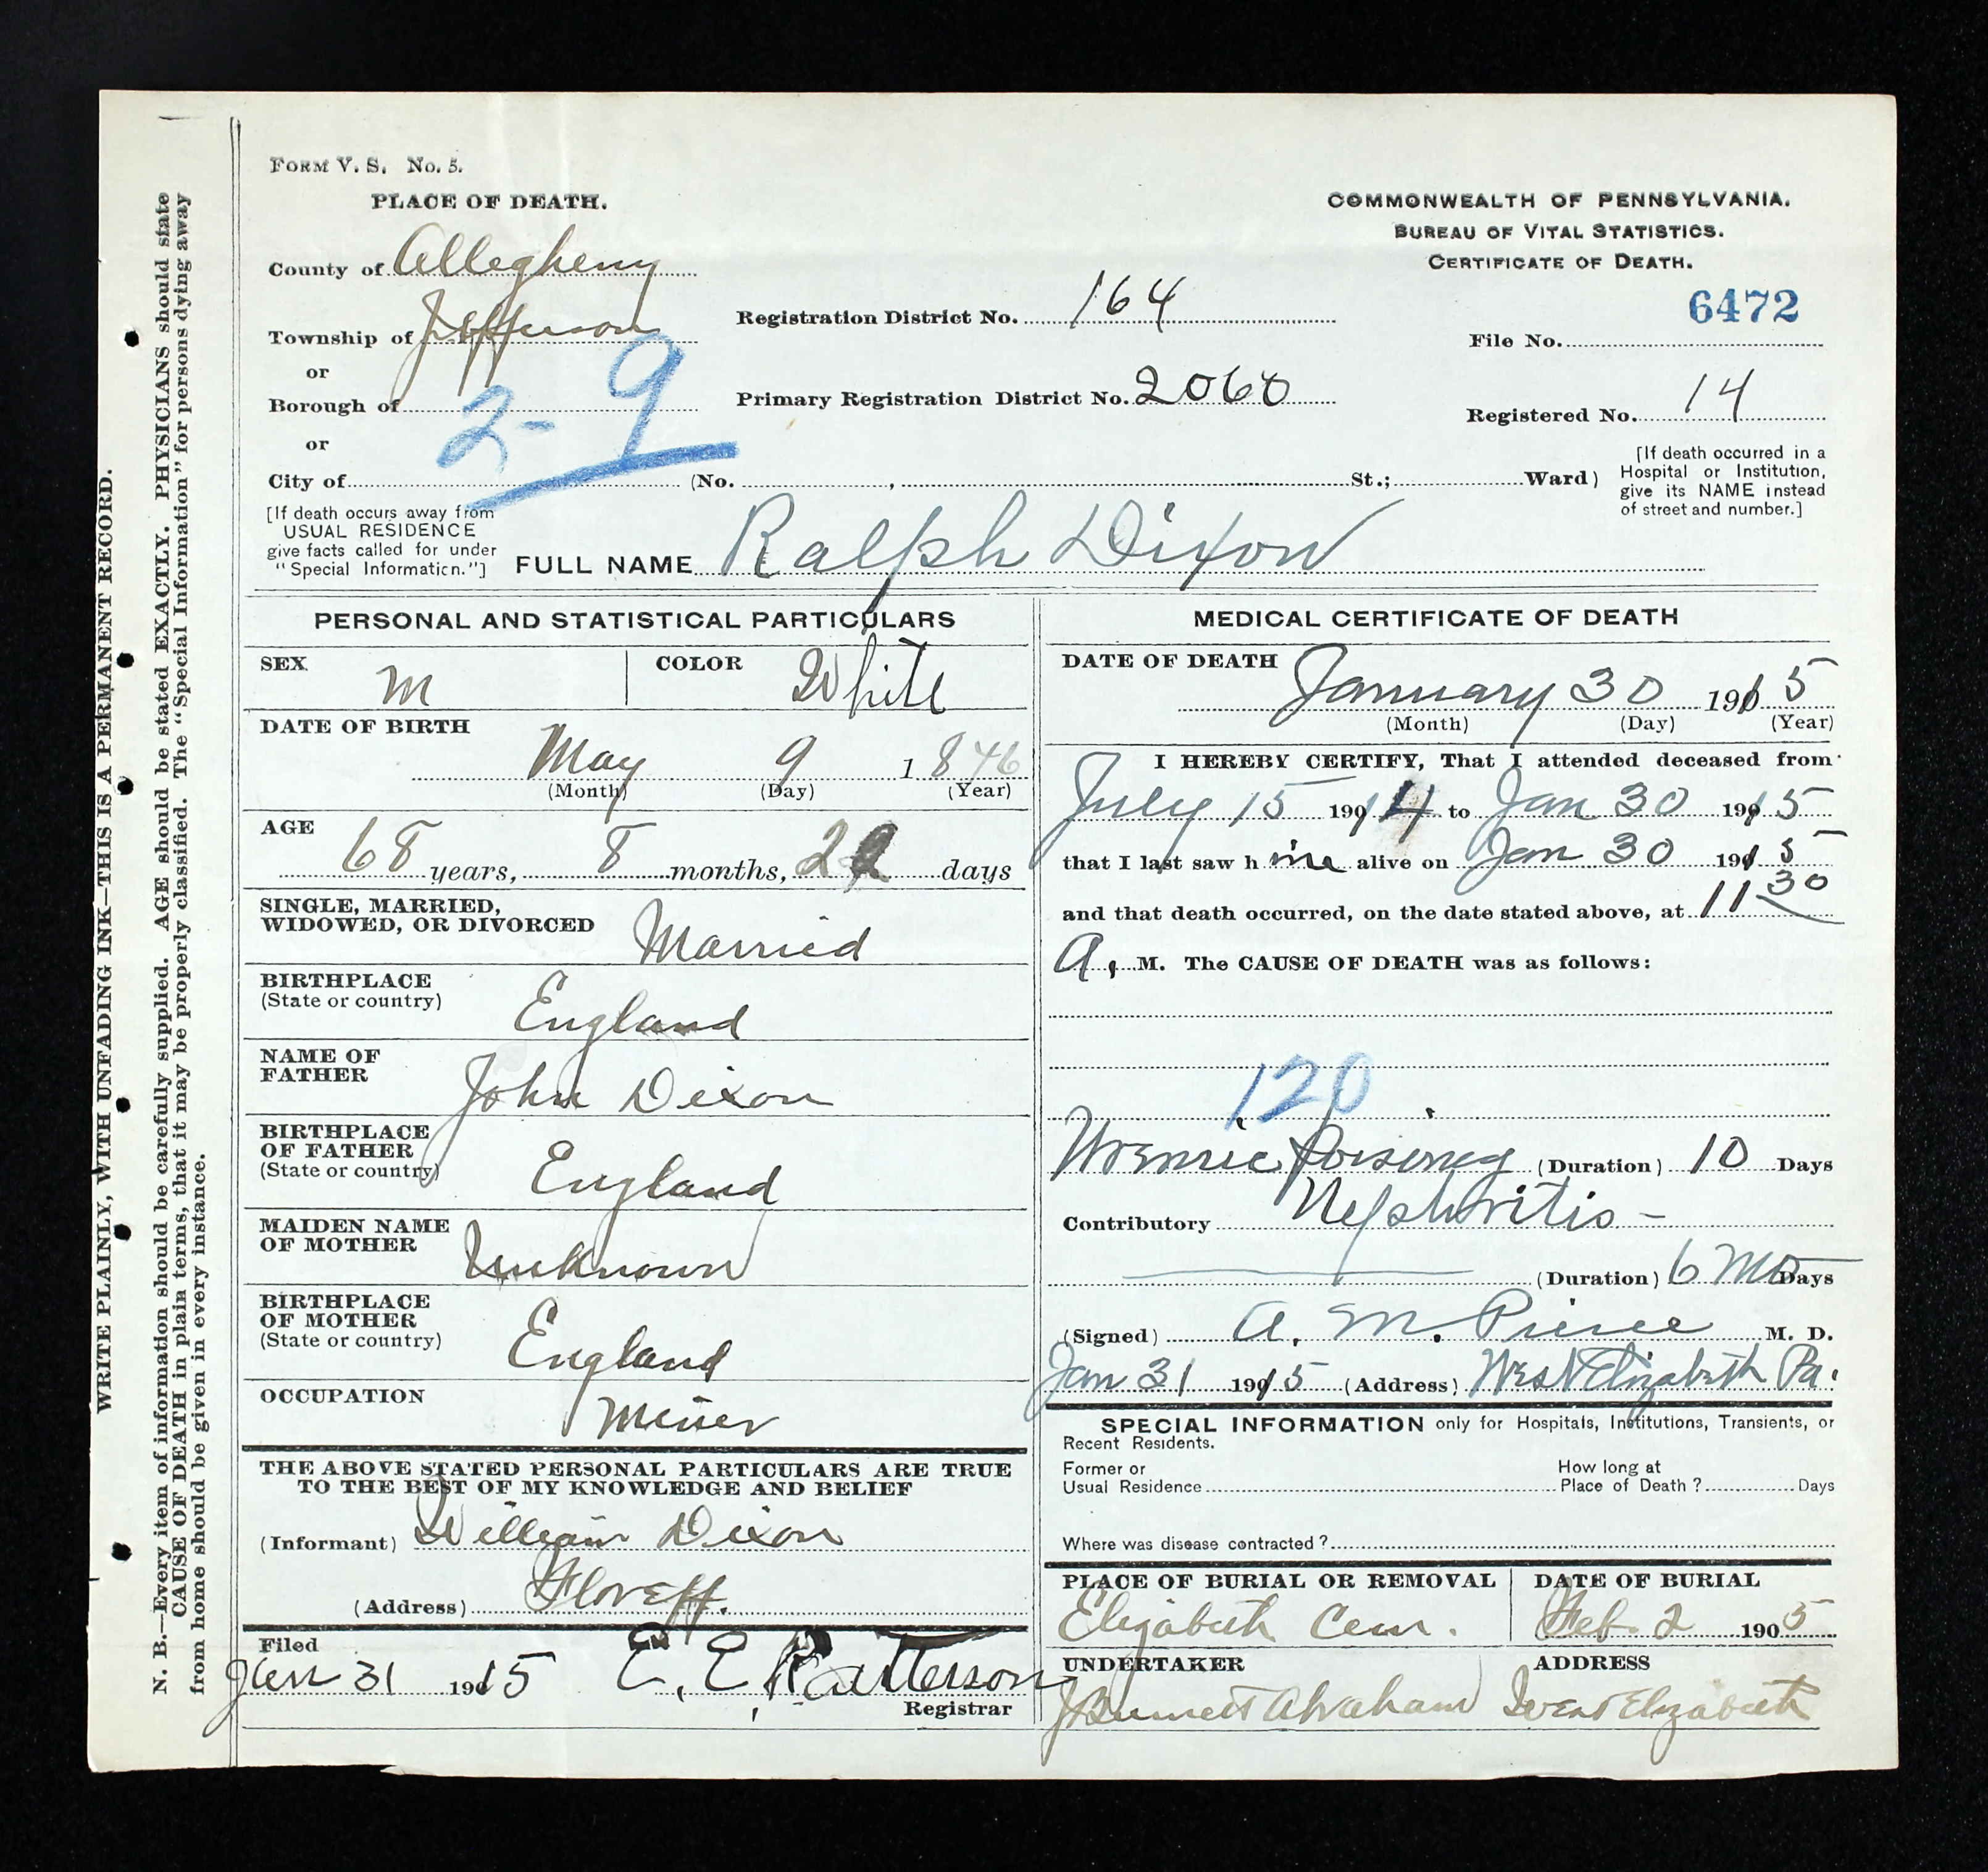 FORM V. S. No. 5.
PLACE OF DEATH.
COMMONWEALTH OF PENNSYLVANIA.
BUREAU OF VITAL STATISTICS.
CERTIFICATE OF DEATH.
County of Allegheny
Township of Jefferson
or
Borough of
or
City of
2-9
Registration District No. 164
Primary Registration District No. 2060
6472
File No.
Registered No. 14
(No. , St.; Ward)
[If death occurred in a
Hospital or Institution,
give its NAME instead
of street and number.]
[If death occurs away from
USUAL RESIDENCE
give facts called for under
"Special Information."]
FULL NAME Ralph Dixon
PERSONAL AND STATISTICAL PARTICULARS
SEX M
COLOR White
DATE OF BIRTH
May 9 1846
(Month) (Day) (Year)
AGE
68 years, 8 months, days
SINGLE, MARRIED,
WIDOWED, OR DIVORCED Married
BIRTHPLACE
(State or country) England
NAME OF
FATHER John Dixon
BIRTHPLACE
OF FATHER
(State or country) England
MAIDEN NAME
OF MOTHER Unknown
BIRTHPLACE
OF MOTHER
(State or country) England
OCCUPATION Miner
THE ABOVE STATED PERSONAL PARTICULARS ARE TRUE
TO THE BEST OF MY KNOWLEDGE AND BELIEF
(Informant) William Dixon
(Address) Floreff.
Filed
Jan 31 1915 E. E. Patterson
Registrar
MEDICAL CERTIFICATE OF DEATH
DATE OF DEATH
January 30 1915
(Month) (Day) (Year)
I HEREBY CERTIFY, That I attended deceased from
July 15 1914 to Jan 30 1915
that I last saw him alive on Jan 30 1915
and that death occurred, on the date stated above, at 11 30
A. M. The CAUSE OF DEATH was as follows:
120
Uremic Poisoning (Duration) 10 Days
Contributory Nephritis -
(Duration) 6 Mo Days
(Signed) A. M. Pierce M. D.
Jan 31 1915 (Address) West Elizabeth Pa.
SPECIAL INFORMATION only for Hospitals, Institutions, Transients, or
Recent Residents.
Former or
Usual Residence
How long at
Place of Death? Days
Where was disease contracted?
PLACE OF BURIAL OR REMOVAL
Elizabeth Cem.
DATE OF BURIAL
Feb. 2 1905
UNDERTAKER
Abraham
ADDRESS
West Elizabeth
WRITE PLAINLY, WITH UNFADING INK—THIS IS A PERMANENT RECORD.
N. B.—Every item of information should be carefully supplied. AGE should be stated EXACTLY. PHYSICIANS should state
CAUSE OF DEATH in plain terms, that it may be properly classified. The "Special Information" for persons dying away
from home should be given in every instance.